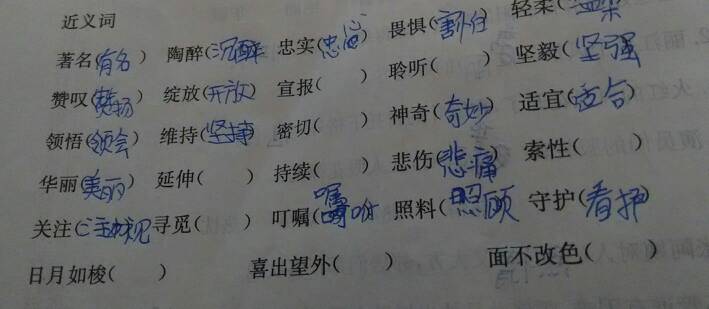 近义词
著名(有名) 陶醉(沉醉) 忠实(忠心) 畏惧(害怕) 轻柔(温柔
赞叹(赞扬) 绽放(开放) 宣报( ) 聆听( ) 坚毅(坚强)
领悟(领会) 维持(坚持) 密切( ) 神奇(奇妙) 适宜(适合)
华丽(美丽) 延伸( ) 持续( ) 悲伤(悲痛) 索性( )
关注(注视) 寻觅( ) 叮嘱(嘱咐) 照料(照顾) 守护(看护)
日月如梭( ) 喜出望外( ) 面不改色( )